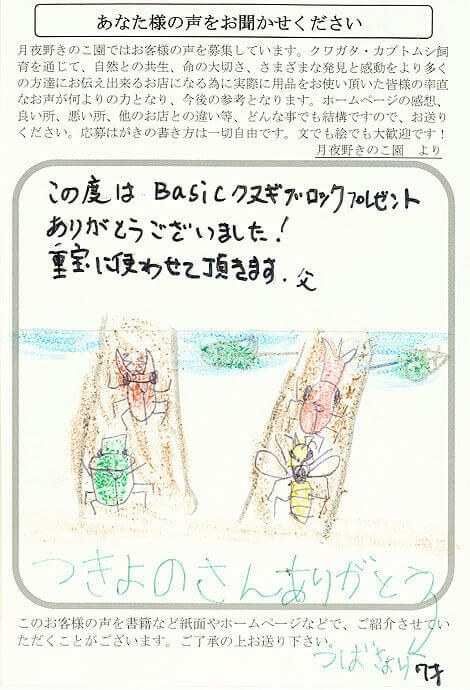 あなた様の声をお聞かせください
月夜野きのこ園ではお客様の声を募集しています。クワガタ・カブトムシ飼
育を通じて、自然との共生、命の大切さ、さまざまな発見と感動をより多く
の方達にお伝え出来るお店になる為に実際に用品をお使い頂いた皆様の率直
なお声が何よりの力となり、今後の参考となります。ホームページの感想、
良い所、悪い所、他のお店との違い等、どんな事でも結構ですので、お送り
ください。応募はがきの書き方は一切自由です。文でも絵でも大歓迎です！
月夜野きのこ園　より
この度は Basicクヌギブロックプレゼント
ありがとうございました！
重宝に使わせて頂きます. 父
つきよのさんありがとう
このお客様の声を書籍など紙面やホームページなどで、ご紹介させてい
ただくことがございます。ご了承の上お送り下さい。
つばさより 7才